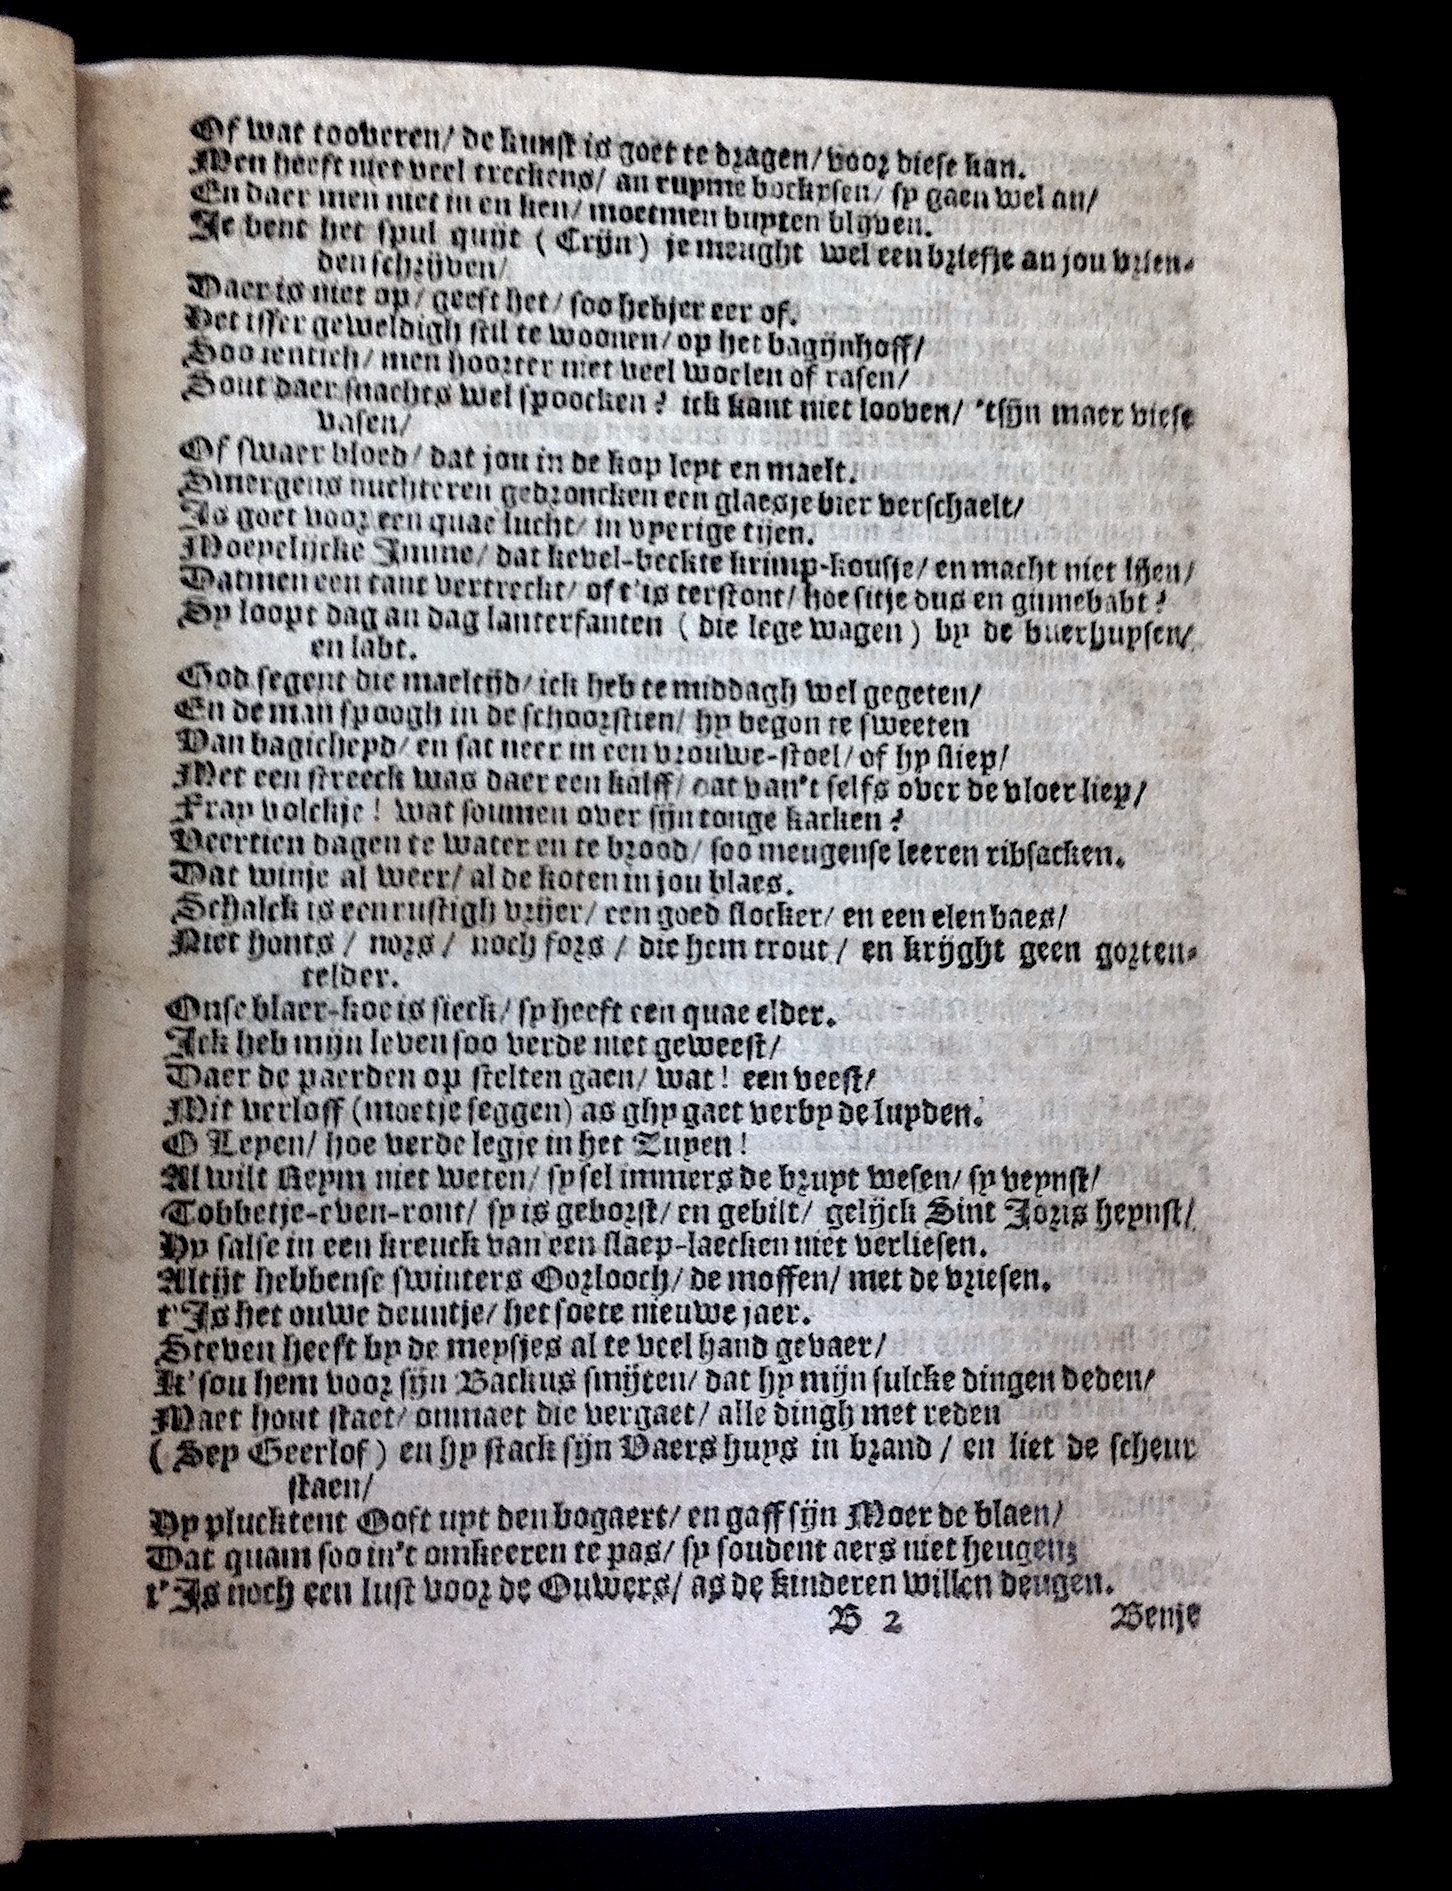 Of wat tooveren/ de kunst is goet te dragen/ voor diese kan.
Men heeft niet veel treckens/ an ruyme bockysen/ sy gaen wel an/
En daer men niet in en ken/ moetmen buyten blijven.
Je bent het spul quijt (Crijn) je meught wel een briefje an jou vrien-
den schrijven/
Daer is niet op/ geeft het/ soo hebjer eer of.
Het isser geweldigh stil te woonen/ op het bagijnhoff/
Soo jentich/ men hoorter niet veel woelen of rasen/
Sout daer snachts wel spoocken? ick kant niet looven/ 'tsijn maer viese
vasen/
Of swaer bloed/ dat jou in de kop leyt en maelt.
Smergens nuchteren gedroncken een glaesje bier verschaelt/
Is goet voor een quae lucht/ in vyerige tijen.
Moeyelijcke Jmme/ dat kevel-beckte krimp-kousje/ en macht niet lijen/
Datmen een tant vertreckt/ of t'is terstont/ hoe sitje dus en ginnebabt?
Sy loopt dag an dag lanterfanten (die lege wagen) by de buerhuysen/
en labt.
God segent die maeltijd/ ick heb te middagh wel gegeten/
En de man spoogh in de schoorstien/ hy begon te sweeten
Van bagicheyd/ en sat neer in een vrouwe-stoel/ of hy sliep/
Met een streeck was daer een kalff/ dat van't selfs over de vloer liep/
Fray volckje! wat soumen over sijn tonge kacken?
Veertien dagen te water en te brood/ soo meugense leeren ribsacken.
Dat winje al weer/ al de koten in jou blaes.
Schalck is een rustigh vrijer/ een goed slocker/ en een elen baes/
Niet honts/ nors/ noch fors/ die hem trout/ en krijght geen gorten-
telder.
Onse blaer-koe is sieck/ sy heeft een quae elder.
Ick heb mijn leven soo verde niet geweest/
Daer de paerden op stelten gaen/ wat! een veest/
Mit verloff (moetje seggen) as ghy gaet verby de luyden.
O Leyen/ hoe verde legje in het Zuyen!
Al wilt Reym niet weten/ sy sel immers de bruyt wesen/ sy veynst/
Tobbetje-even-ront/ sy is geborst/ en gebilt/ gelijck Sint Joris heynst/
Hy salse in een kreuck van een slaep-laecken niet verliesen.
Altijt hebbense swinters Oorlooch/ de moffen/ met de vriesen.
t'Is het ouwe deuntje/ het soete nieuwe jaer.
Steven heeft by de meysjes al te veel hand gevaer/
Ik' sou hem voor sijn Backus smijten/ dat hy mijn sulcke dingen deden/
Maet hout staet/ onmaet die vergaet/ alle dingh met reden
(Sey Geerlof) en hy stack sijn Vaers huys in brand/ en liet de scheur
staen/
Hy plucktent Ooft uyt den bogaert/ en gaff sijn Moer de blaen/
Dat quam soo in't omkeeren te pas/ sy soudent aers niet heugen;
t'Is noch een lust voor de Ouwers/ as de kinderen willen deugen.
B 2 Benje